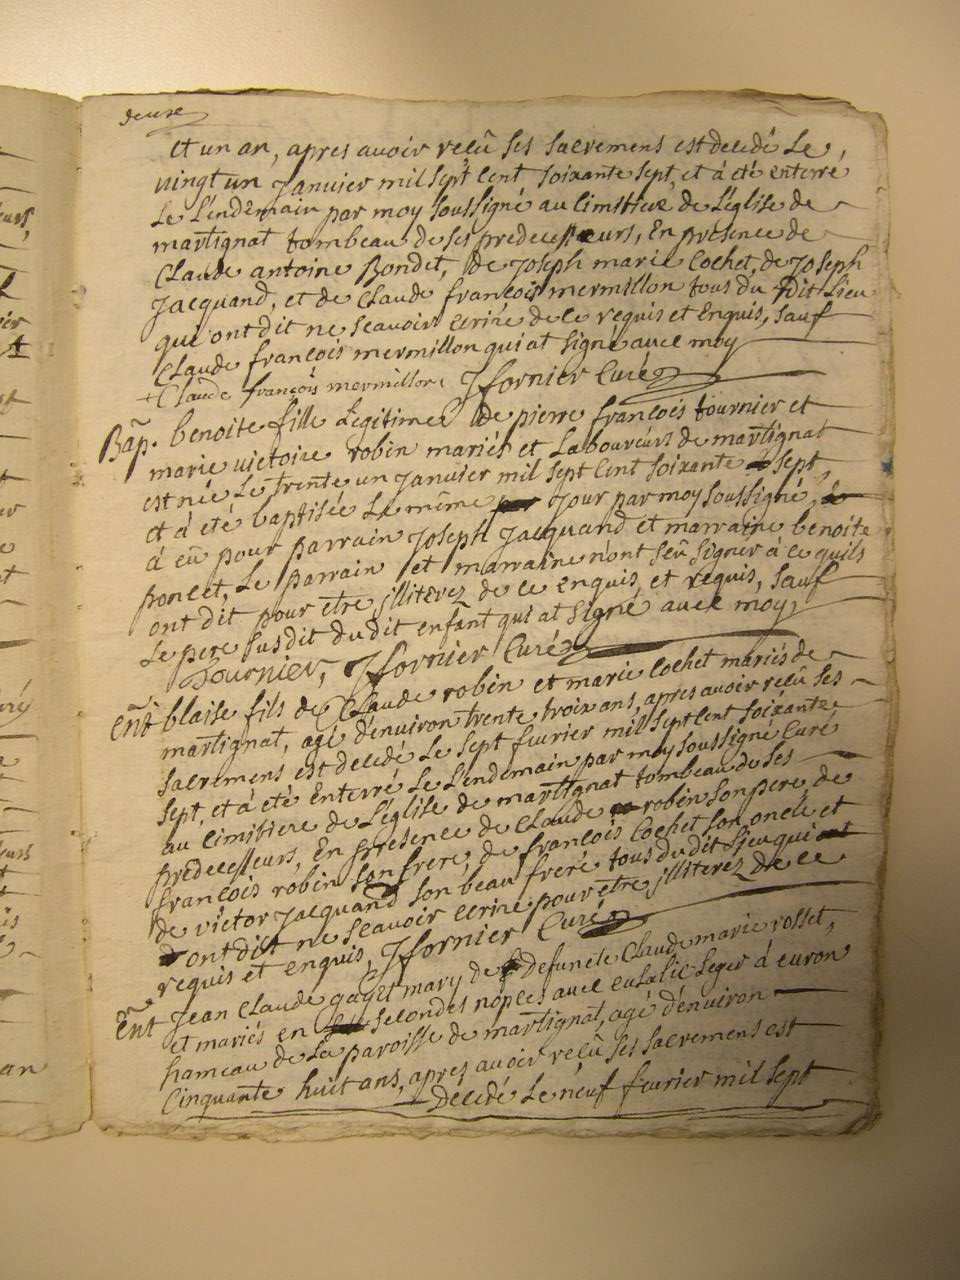 deuxe
et un an, apres avoir reçû ses sacremens est decedé Le
vingt un Janvier mil sept cent soixante sept, et à été enterré
Le Lendemain par moy soussigné au cimitiere de Léglise de
martignat tombeau de ses predecesseurs, En presence de
Claude antoine Bondet, de Joseph marie Cochet, de Joseph
Jacquand, et de Claude françois mermillon tous du dit Lieu
qui ont dit ne scavoir écrire de ce requis et Enquis, sauf
Claude françois mermillon qui at signé avec moy
+ Claude françois mermillon Jfornier Curé
Bap. benoite fille Légitime de pierre françois tournier et
marie victoire robin mariés et Laboureurs de martignat
est née Le trente un Janvier mil sept cent soixante sept
et à été baptisée Le même Jour par moy soussigné,
à eû pour parrain Joseph Jacquand et marraine benoite
poncet, Le parrain et marraine n'ont sçû signer à ce quils
ont dit pour etre jlliterez de ce enquis, et requis, sauf
Le pere susdit du dit enfant qui at signé avec moy,
Tournier, Jfornier Curé
Ent blaise fils de Claude robin et marie Cochet mariés de
martignat, agé d'environ trente troix ans, apres avoir reçû ses
sacremens est decedé Le sept fevrier mil sept cent soixante
sept, et à été Enterré Le Lendemain par moy soussigné Curé
au cimitiere de Léglise de martignat tombeau de ses
predecesseurs, En presence de Claude robin son pere, de
françois robin son frere, de françois Cochet son oncle et
de victor Jacquand son beau frere tous du dit Lieu qui
ont dit ne scavoir ecrire pour etre jlliterez de ce
requis et enquis, Jfornier Curé
Ent Jean Claude gayet mary de defuncte Claude marie rosset,
et mariés en secondes nôpces avec eulalie Leger à euron
hameau de La paroisse de martignat, agé d'environ
Cinquante huit ans, apres avoir reçû ses sacremens est
Décédé Le neuf fevrier mil sept